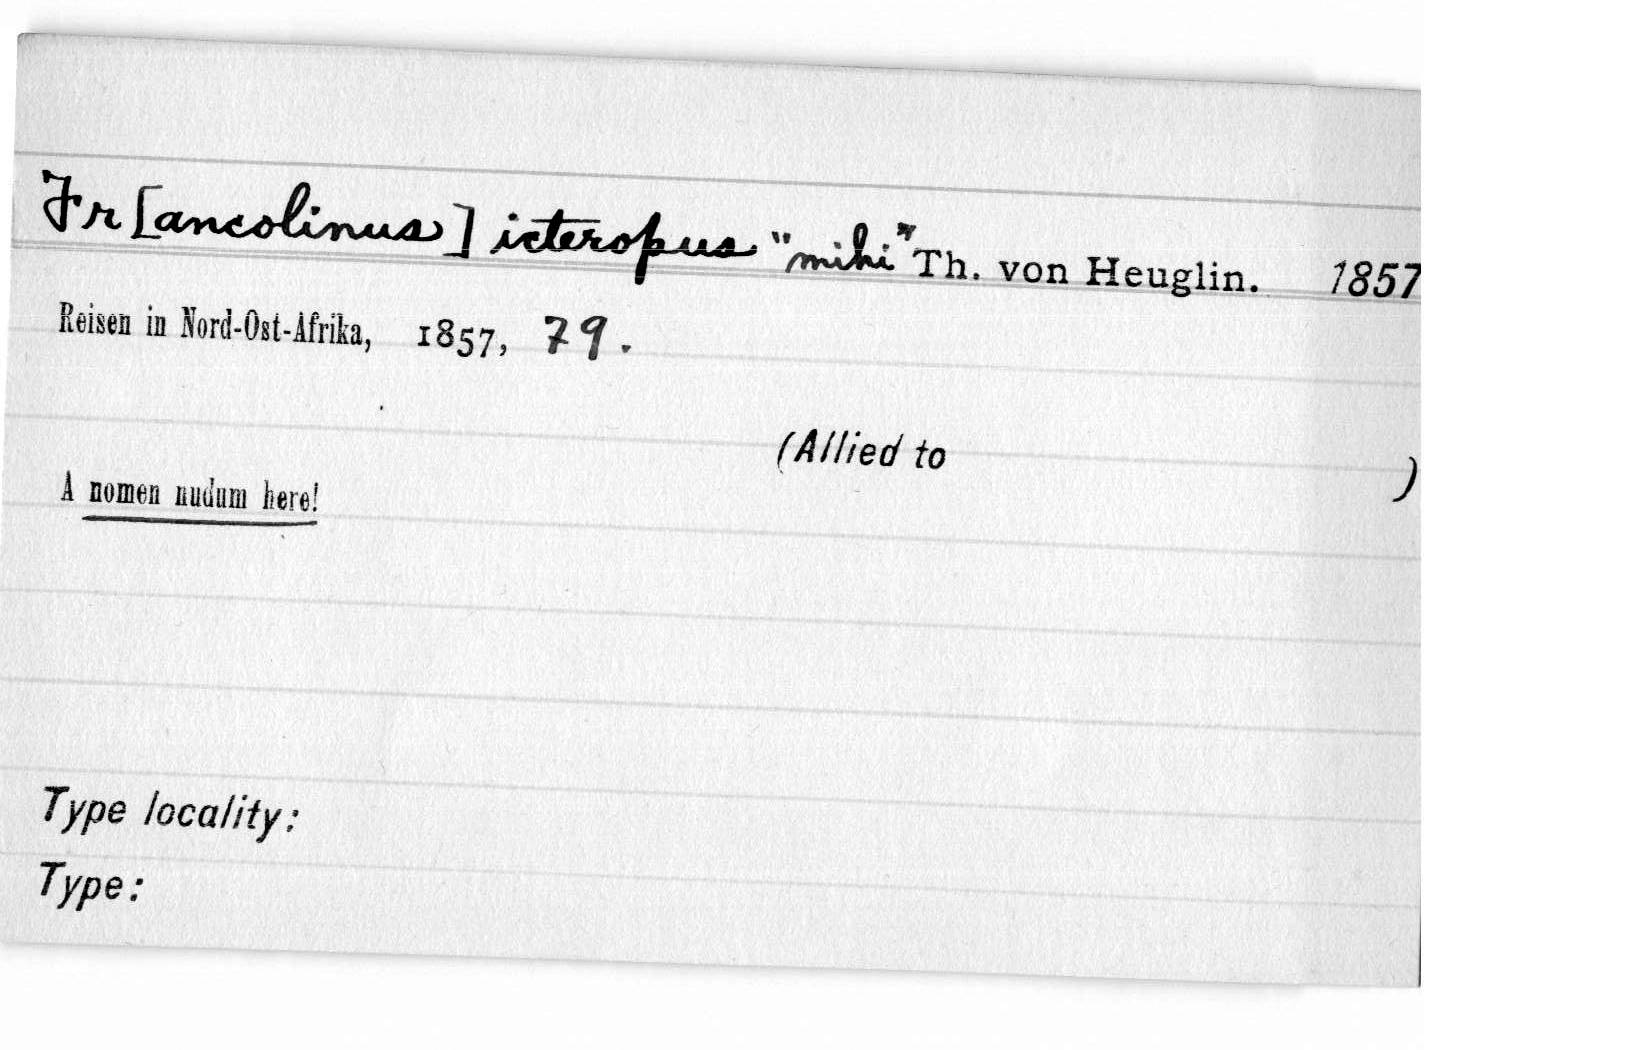 Fr[ancolinus] icteropus "mihi" Th. von Heuglin. 1857
Reisen in Nord-Ost-Afrika, 1857, 79.
(Allied to )
A nomen nudum here!
Type locality:
Type: